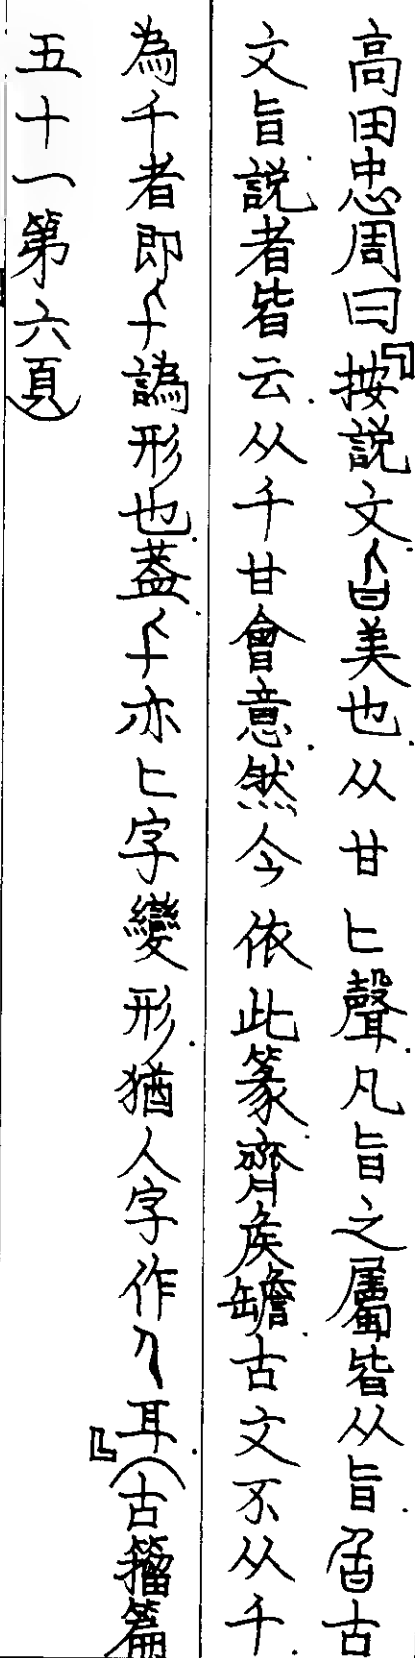 高田忠周曰『按說文㫖美也.从甘匕聲.凡旨之屬皆从旨.𠤔古
文旨說者皆云.从千甘會意.然今依此篆齊矦𦉜.古文不从千.
為千者即𠂉譌形也.葢𠂉亦匕字變形.猶人字作𠆢耳.』（古籀篇
五十一第六頁）